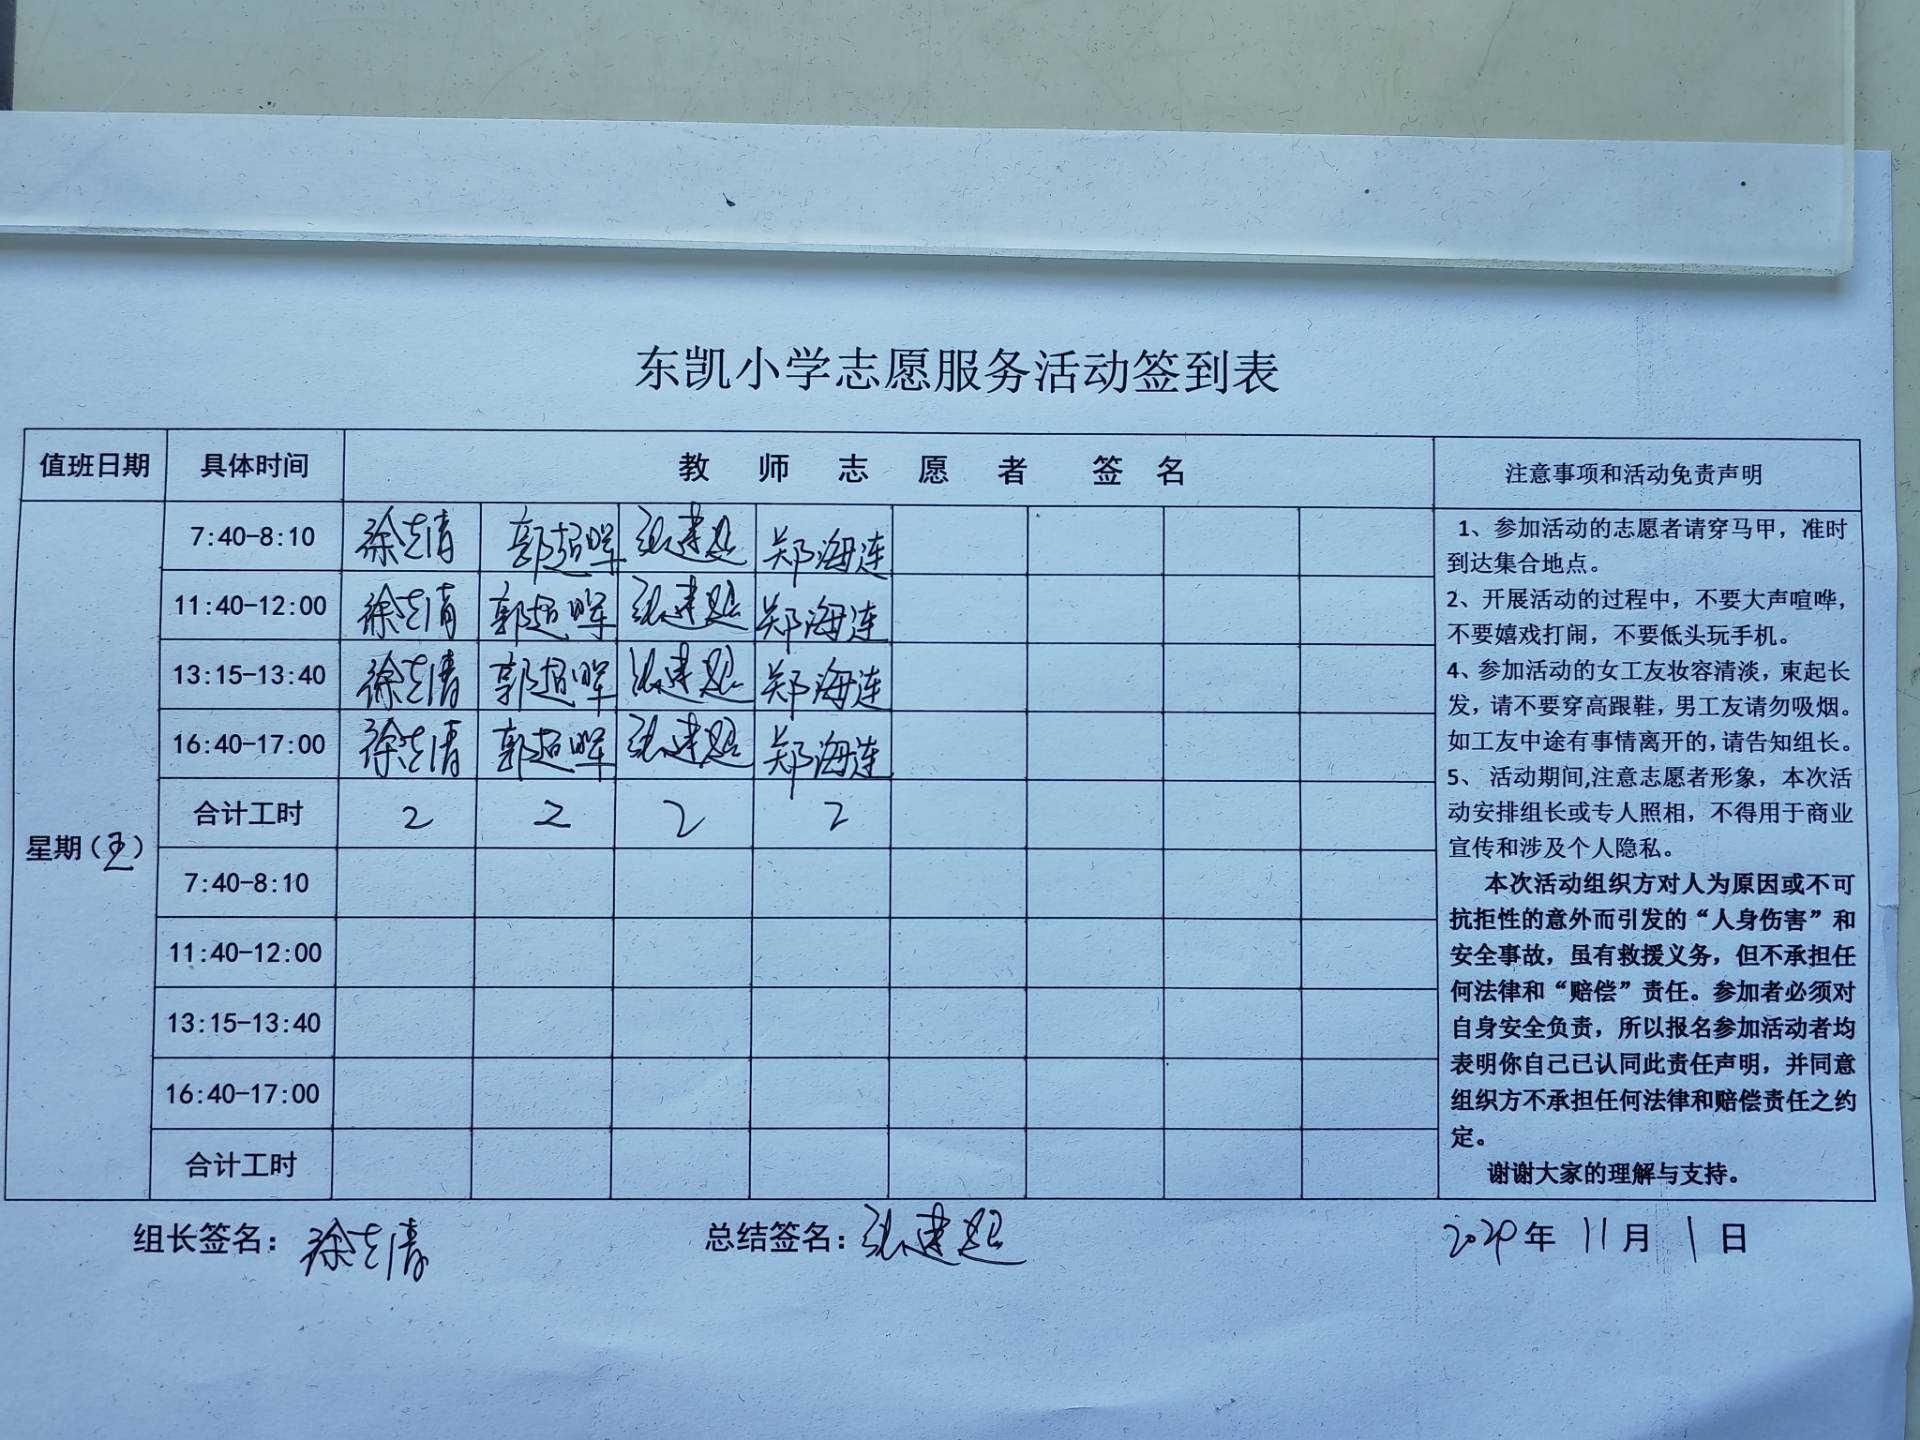 东凯小学志愿服务活动签到表
值班日期 具体时间 教师志愿者 签名 注意事项和活动免责声明
星期(五)
7:40-8:10 徐志清 郭超晖 张建超 郑海连
11:40-12:00 徐志清 郭超晖 张建超 郑海连
13:15-13:40 徐志清 郭超晖 张建超 郑海连
16:40-17:00 徐志清 郭超晖 张建超 郑海连
合计工时 2 2 2 2
7:40-8:10
11:40-12:00
13:15-13:40
16:40-17:00
合计工时
1、参加活动的志愿者请穿马甲，准时
到达集合地点。
2、开展活动的过程中，不要大声喧哗，
不要嬉戏打闹，不要低头玩手机。
4、参加活动的女工友妆容清淡，束起长
发，请不要穿高跟鞋，男工友请勿吸烟。
如工友中途有事情离开的，请告知组长。
5、 活动期间,注意志愿者形象，本次活
动安排组长或专人照相，不得用于商业
宣传和涉及个人隐私。
本次活动组织方对人为原因或不可
抗拒性的意外而引发的“人身伤害”和
安全事故，虽有救援义务，但不承担任
何法律和“赔偿”责任。参加者必须对
自身安全负责，所以报名参加活动者均
表明你自己已认同此责任声明，并同意
组织方不承担任何法律和赔偿责任之约
定。
谢谢大家的理解与支持。
组长签名：徐志清 总结签名：张建超 2024年 11月 1日